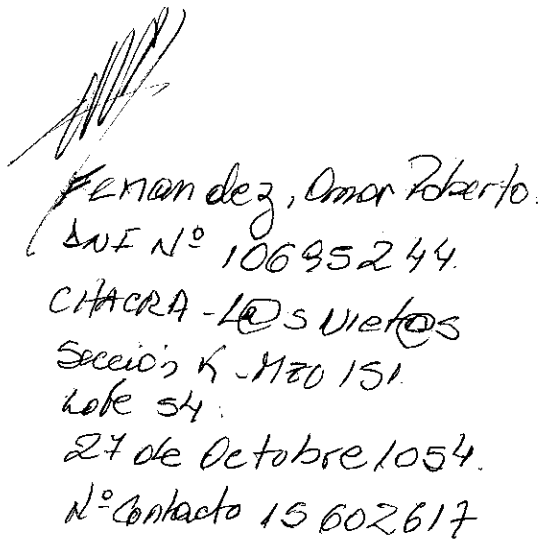 Fernandez, Omar Roberto.
DNI Nº 10695244.
CHACRA - L@s Niet@s
Sección K - MZO 151.
Lote 54.
27 de Octobre 1054.
Nº Contacto 15602617